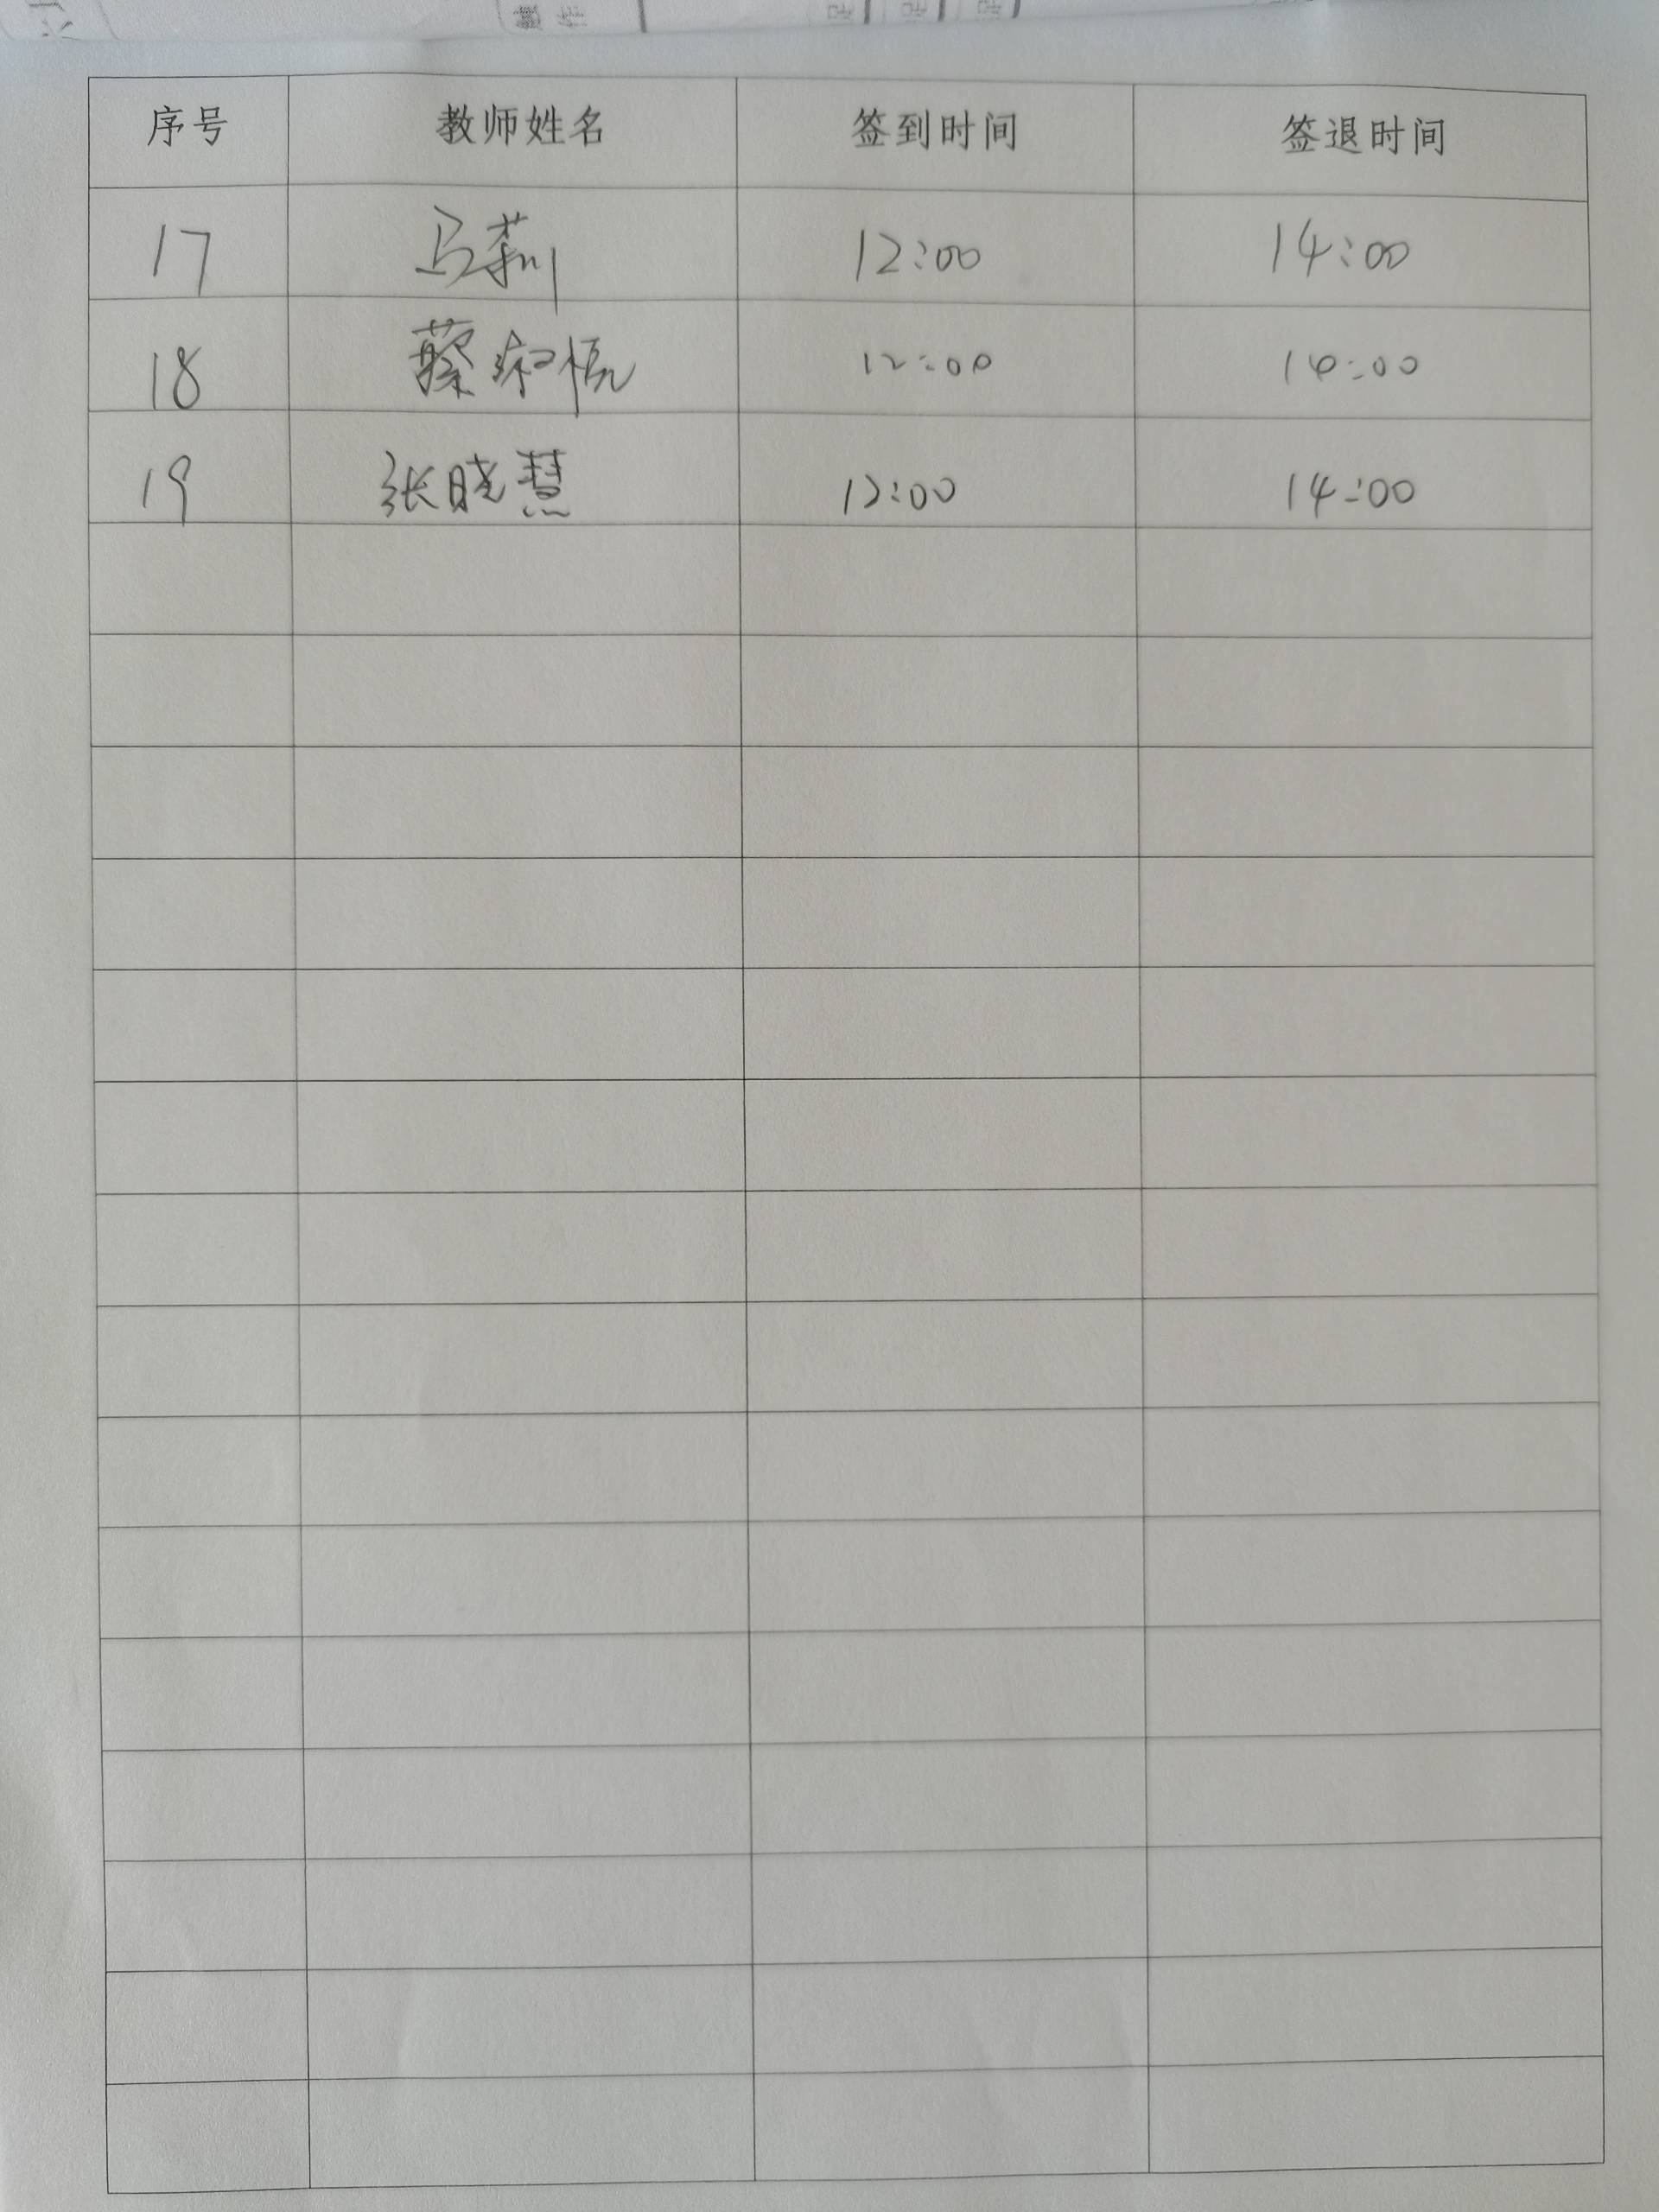 序号 教师姓名 签到时间 签退时间
17 马莉 12:00 14:00
18 蔡淑悦 12:00 14:00
19 张晓慧 12:00 14:00